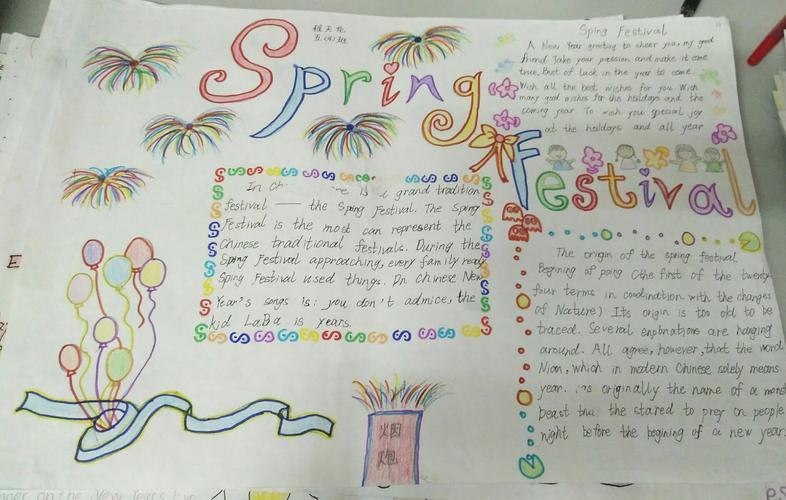 Spring
Festival
程天佑
五(4)班
Sping Festival
A New Year greeting to cheer you, my good
friend Take your passion and make it come
true. Best of luck in the year to come.
Wish all the best wishes for you With
many god wishes for the holidays and the
coming year. To wish you special joy
at the holidays and all year
In Ch is grand tradition
festival — the Sping Festival. The Sping
Festival is the most can represent the
Chinese traditional festivals. During the
Sping Festival approaching, every family ready
Sping Festival used things. Dn Chinese New
Year's songs is: you don't admice, the
kid LaBa is years.
The origin of the spring festival
Begining of poing (the first of the twenty-
four terms in cordination with the changes
of Nature) Its origin is too old to be
traced. Several explnations are hanging
around. All agree, however, that the word
Nian, which in modern Chinese solely means
year. originally the name of a monst
beast the stared to prey on people
night before the begining of a new year.
烟
炮
E
nner on the New Year's Eve